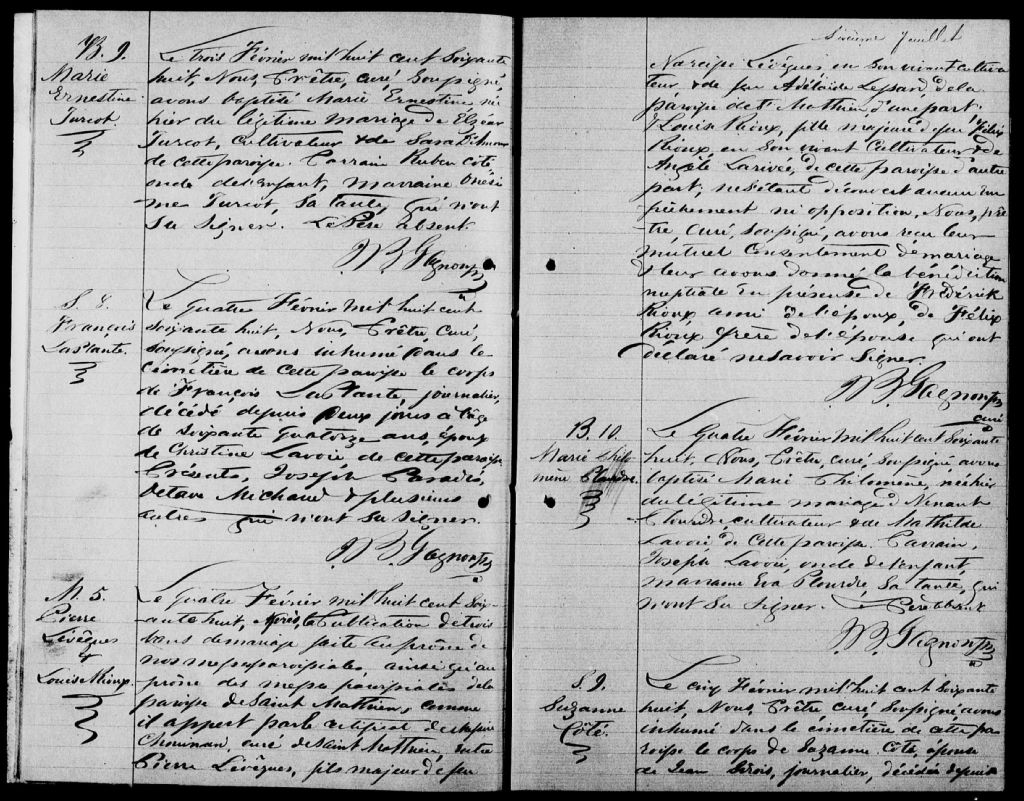 B. 9.
Marie
Ernestine
Turcot.
Le trois Février mil huit cent Soixante
huit, Nous, Prêtre, curé, Soussigné,
avons baptisé Marie Ernestine, né
hier du légitime mariage de Elzéar
Turcot, Cultivateur & de Sara D'Amour
de cette paroisse. Parrain Ruben Côté
oncle de l'enfant, marraine Onési
me Turcot, Sa tante, qui n'ont
Su Signer. Le Père absent.
J B Gagnon Ptr
S. 8.
François
LaPlante.
Le Quatre Février mil huit cent
Soixante huit, Nous, Prêtre, curé,
Soussigné, avons inhumé dans le
cimetière de cette paroisse le corps
de François LaPlante, journalier,
décédé depuis deux jours à l'âge
de soixante quatorze ans, époux
de Christine Lavoie de cette paroisse
Présents, Joseph Paradis,
Octave Michaud & plusieurs
autres qui n'ont Su Signer.
J B Gagnon Ptr
M. 5.
Pierre
Lévêques
&
Louise Rioux.
Le Quatre Février mil huit cent Soix-
ante huit, Après la Publication de trois
bans de mariage faite au prône de
nos messes paroissiales ainsi qu'au
prône des messes paroissiales de la
paroisse de Saint Mathieu, comme
il appert par le certificat de
Chouinard, curé de Saint Mathieu, entre
Pierre Lévêques, fils majeur de feu
Sixième feuillet
Narcisse Lévêques en Son vivant cultiva
teur, & de feu Adélaïde Lepard, de la
paroisse de St Mathieu, d'une part;
& Louise Rioux, fille majeure de feu Félix
Rioux, en Son vivant Cultivateur & de
Angèle Larivée, de cette paroisse d'autre
part; ne s'étant découvert aucun em
pêchement ni opposition, Nous, Prê
tre, curé, soussigné, avons reçu leur
mutuel consentement de mariage
& leur avons donné la bénédiction
nuptiale en présence de Frédérick
Rioux ami de l'époux, de Félix
Rioux frère de l'épouse qui ont
déclaré ne savoir Signer.
J B Gagnon Ptr
curé
B. 10.
Marie Philo
mène Plourde.
Le Quatre Février mil huit cent Soixante
huit, Nous, Prêtre, curé, Soussigné avons
baptisé Marie Philomène, née hier
du légitime mariage de Venant
Plourde, cultivateur & de Mathilde
Lavoie, de cette paroisse. Parrain,
Joseph Lavoie, oncle de l'enfant,
marraine Eva Plourde, Sa tante, qui
n'ont Su Signer. Le Père absent
J B Gagnon Ptr
S. 9.
Suzanne
Côté.
Le cinq Février mil huit cent Soixante
huit, Nous, Prêtre, curé, Soussigné avons
inhumé dans le cimetière de cette pa
roisse le corps de Suzanne Côté, épouse
de Jean Sirois, journalier, décédée depuis